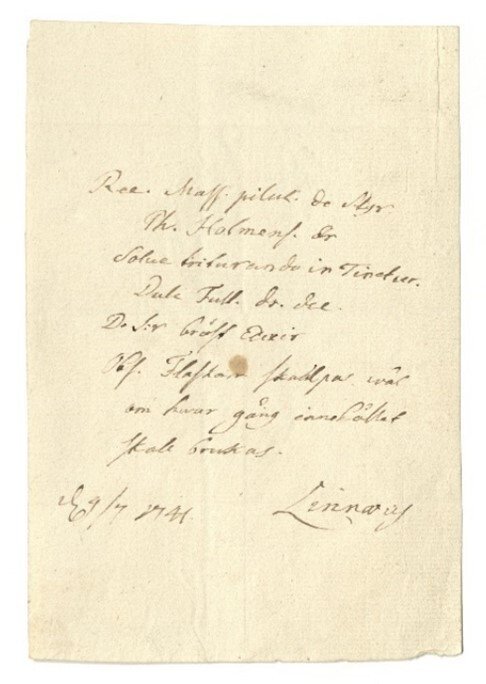 Rec. Mass. pilul. de Styr.
Th. Holmens. dr
Solve triturando in Tinctur.
Dulc. Full. dr. dec.
D. S:r bröst Elixir
Obs. Flaskan skall wäl
om hwar gång innehållet
skall brukas.
d 9/7 1741 Linnæus